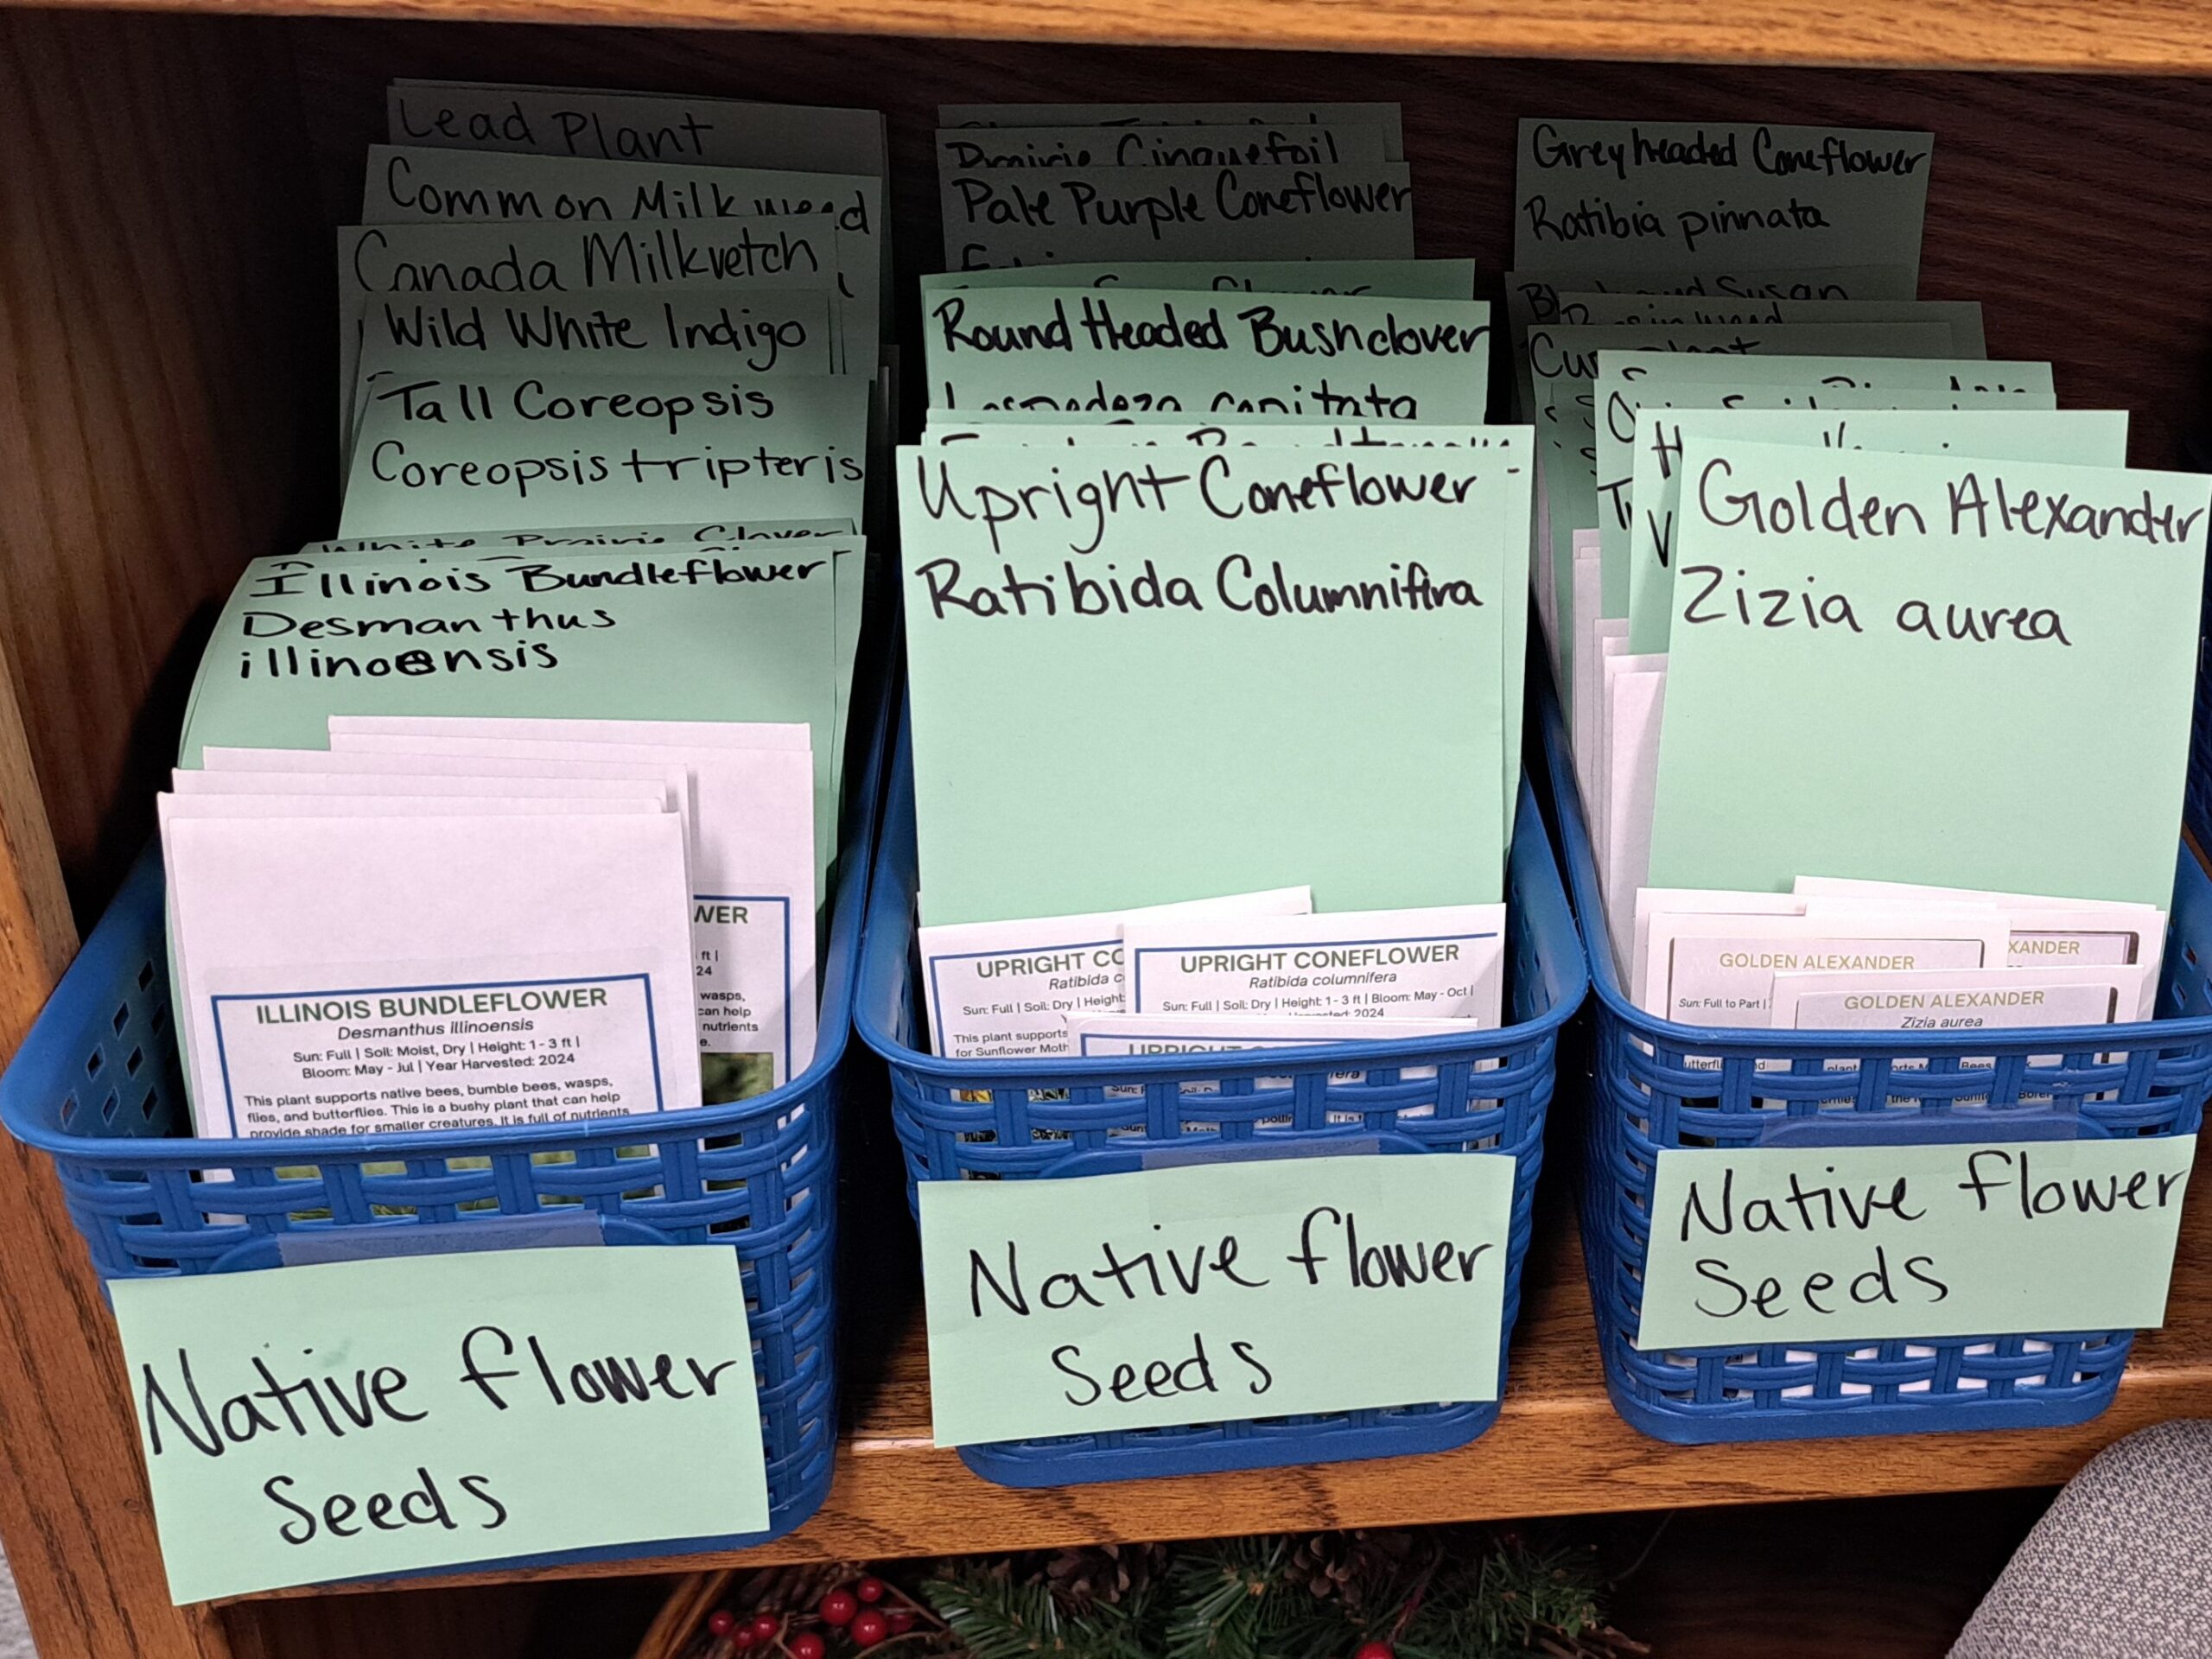 Lead Plant
Common Milkweed
Canada Milkvetch
Wild White Indigo
Tall Coreopsis
Coreopsis tripteris
White Prairie Clover
Illinois Bundleflower
Desmanthus
illinoensis
WER
ft |
24
wasps,
can help
nutrients
e.
ILLINOIS BUNDLEFLOWER
Desmanthus illinoensis
Sun: Full | Soil: Moist, Dry | Height: 1 - 3 ft |
Bloom: May - Jul | Year Harvested: 2024
This plant supports native bees, bumble bees, wasps,
flies, and butterflies. This is a bushy plant that can help
provide shade for smaller creatures. It is full of nutrients
Native flower
Seeds
Prairie Cinquefoil
Pale Purple Coneflower
Round Headed Bushclover
Lespedeza capitata
Upright Coneflower
Ratibida Columnifira
UPRIGHT CO
Ratibida c
Sun: Full | Soil: Dry | Height:
This plant supports
for Sunflower Moth
UPRIGHT CONEFLOWER
Ratibida columnifera
Sun: Full | Soil: Dry | Height: 1 - 3 ft | Bloom: May - Oct |
2024
UPRIGHT
Native flower
Seeds
Greyheaded Coneflower
Ratibia pinnata
Susan
Golden Alexander
Zizia aurea
GOLDEN ALEXANDER
Sun: Full to Part |
XANDER
GOLDEN ALEXANDER
Zizia aurea
Native flower
Seeds